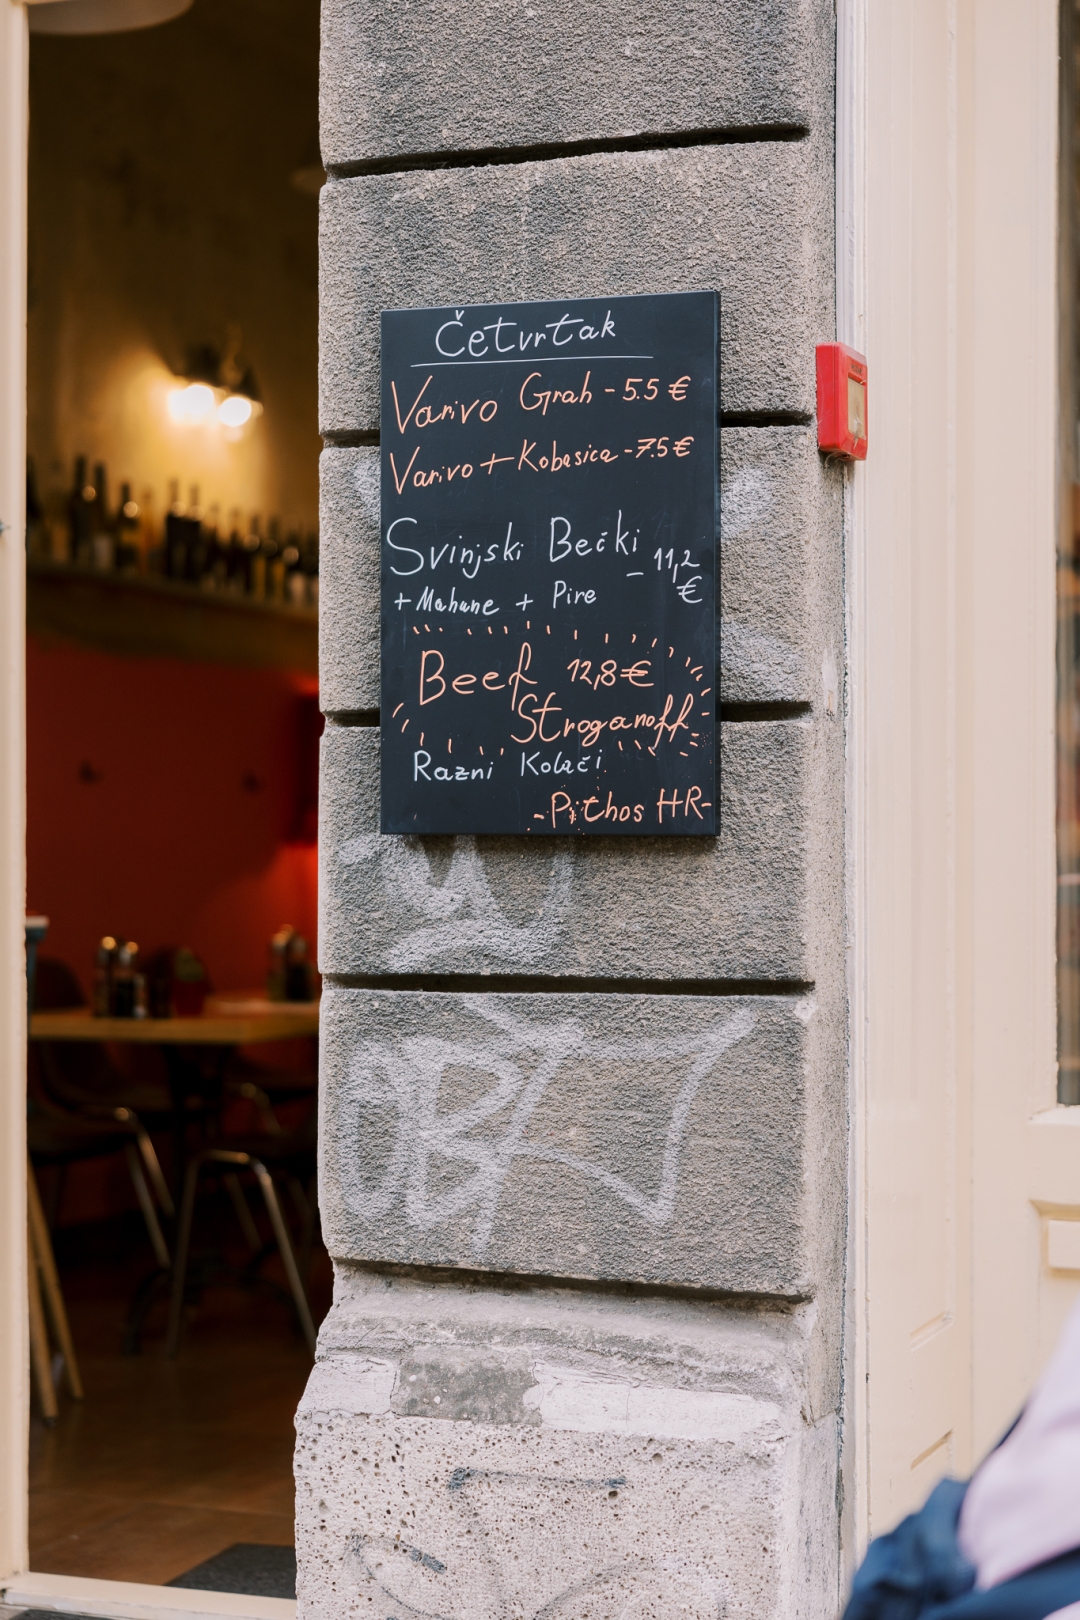 Četvrtak
Varivo Grah - 5.5 €
Varivo + Kobasica - 7.5 €
Svinjski Bečki
- 11,2
€
+ Mahune + Pire
Beef 12,8 €
Stroganoff
Razni Kolači
- Pithos HR -